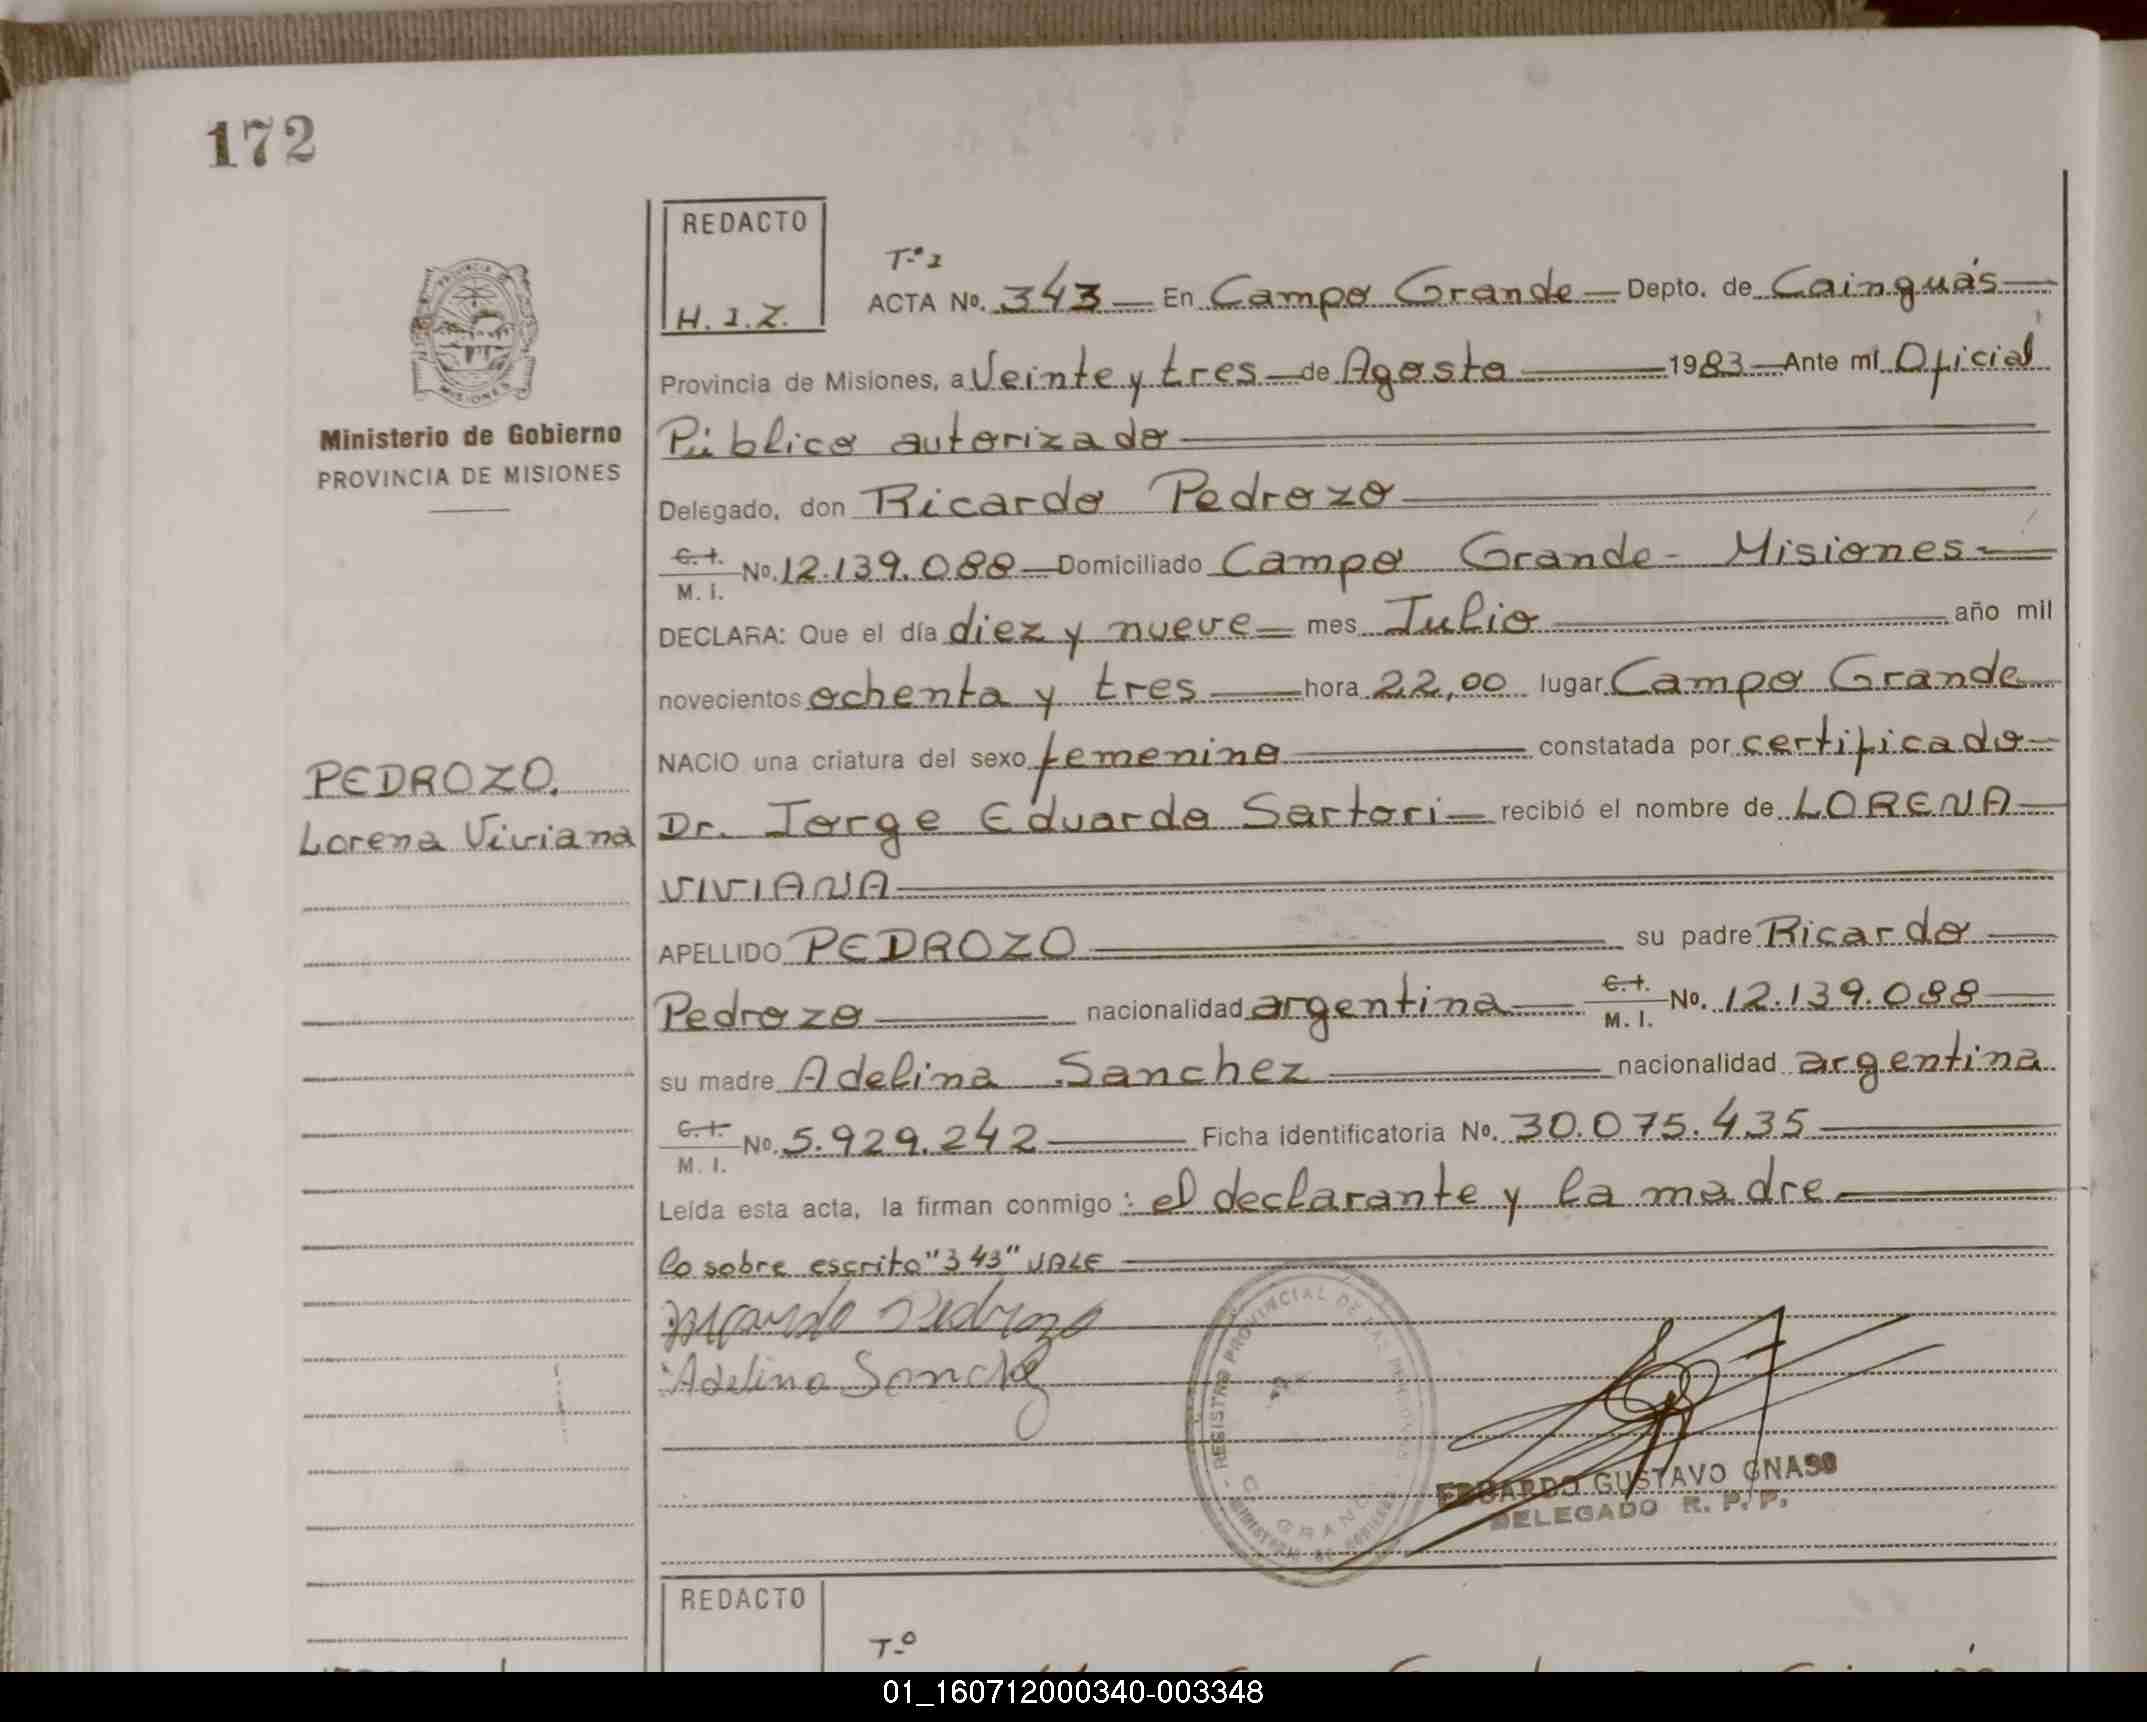 172
REDACTO
H.I.Z.
T.º 2
ACTA Nº. 343 En Campo Grande Depto. de Cainguás
Provincia de Misiones, a Veinte y tres de Agosto 1983 Ante mí Oficial
Público autorizado
Delegado, don Ricardo Pedrozo
C.I. M.I. Nº. 12.139.088 Domiciliado Campo Grande - Misiones
DECLARA: Que el día diez y nueve mes Julio año mil
novecientos ochenta y tres hora 22,00 lugar Campo Grande
NACIO una criatura del sexo femenino constatada por certificado
Dr. Jorge Eduardo Sartori recibió el nombre de LORENA
VIVIANA
APELLIDO PEDROZO su padre Ricardo
Pedrozo nacionalidad argentina C.I. M.I. Nº. 12.139.088
su madre Adelina Sanchez nacionalidad argentina
C.I. M.I. Nº. 5.929.242 Ficha identificatoria Nº. 30.075.435
Leída esta acta, la firman conmigo: el declarante y la madre
lo sobre escrito "343" VALE
Ricardo Pedrozo
Adelina Sanchez
PROVINCIA DE MISIONES
Ministerio de Gobierno
PROVINCIA DE MISIONES
PEDROZO.
Lorena Viviana
REGISTRO PROVINCIAL DE LAS PERSONAS
MINISTERIO DE GOBIERNO
EDUARDO GUSTAVO GNASO
DELEGADO R. P. P.
REDACTO
T.º
01_160712000340-003348